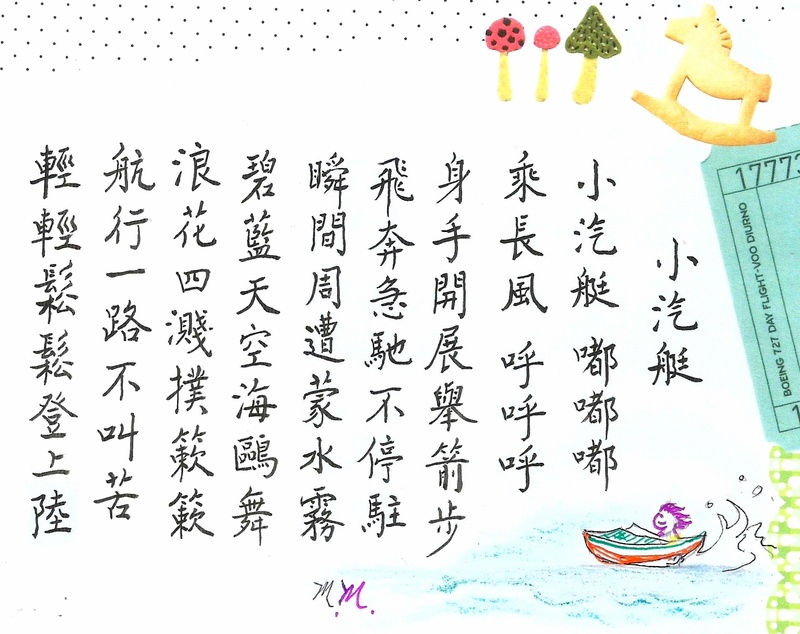 小汽艇
小汽艇 嘟嘟嘟
乘長風 呼呼呼
身手開展舉箭步
飛奔急馳不停駐
瞬間周遭蒙水霧
碧藍天空海鷗舞
浪花四濺撲簌簌
航行一路不叫苦
輕輕鬆鬆登上陸
M.M.
17773
BOEING 727 DAY FLIGHT-VOO DIURNO